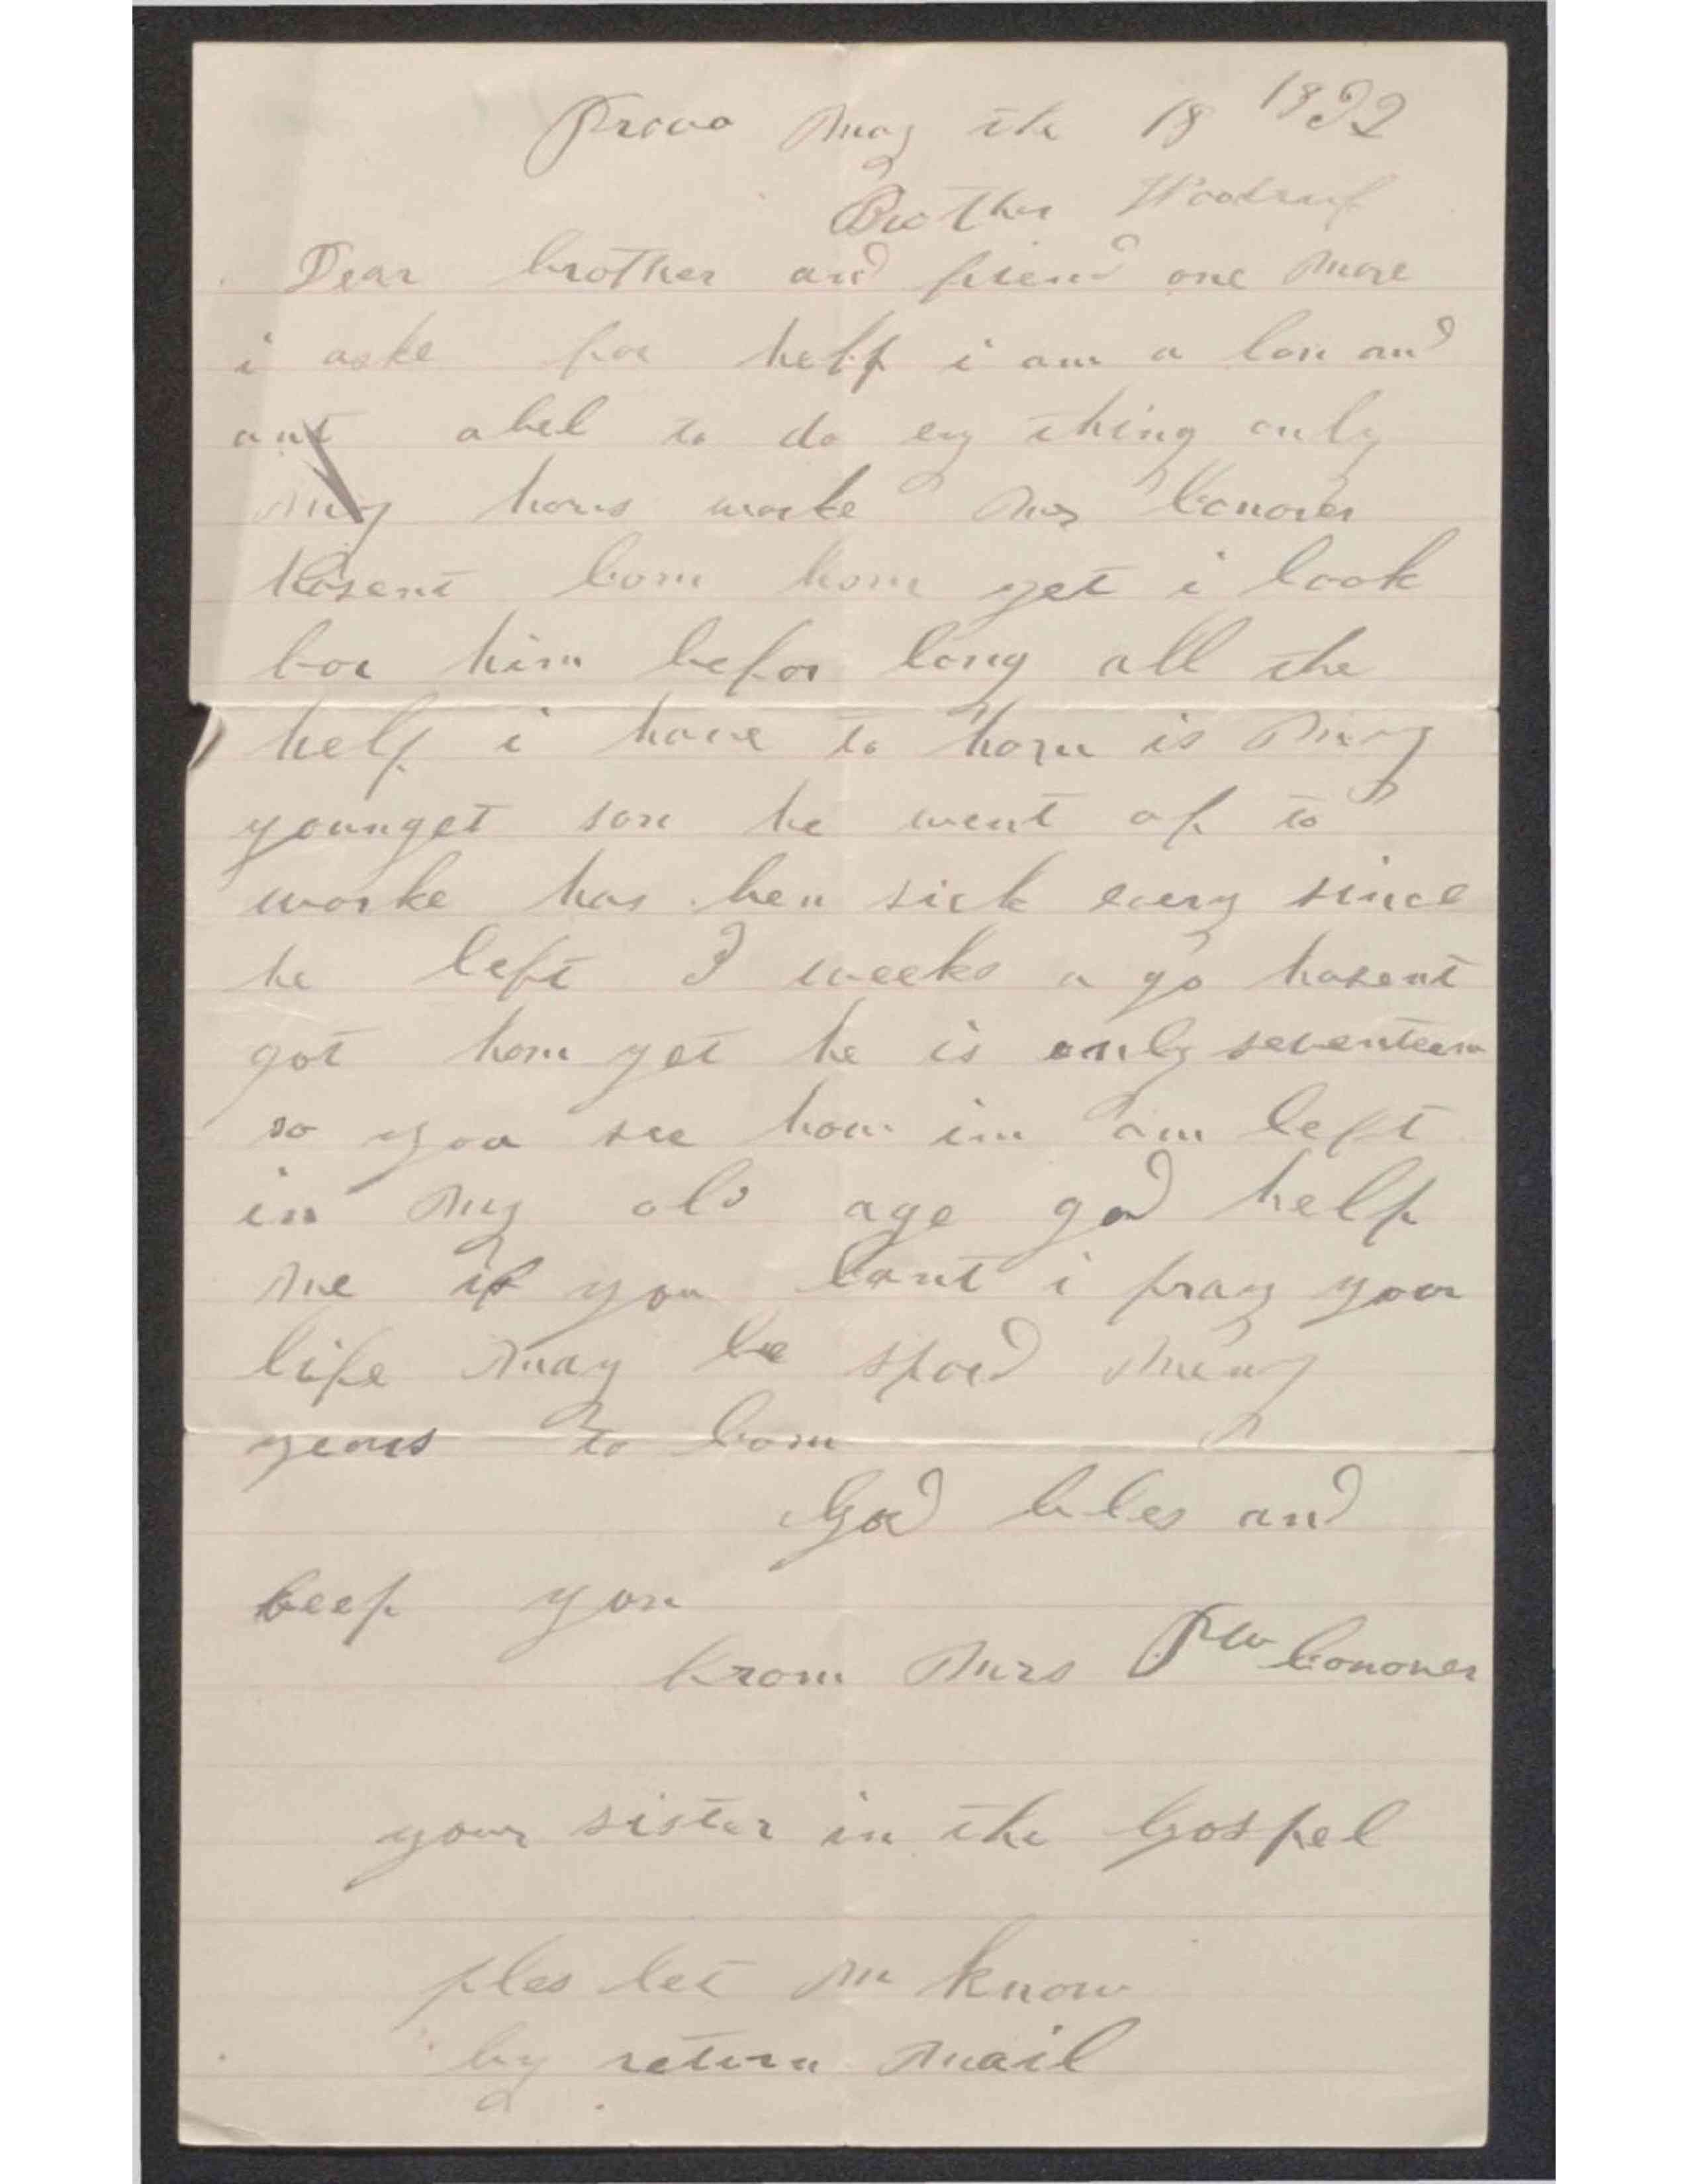 Provo May the 18 1892
Brother Woodruf
Dear brother and friend one more
i aske for help i am a lon and
ant abel to do eny thing only
my hous worke Mr Conover
hasent Com hom yet i look
for him befor long all the
help i have to hom is my
younget son he went of to
worke has ben sick every since
he left 3 weeks a go hasent
got hom yet he is only seventeen
so you see how im am left
in my old age god help
me if you Cant i pray your
life may be spard meny
years to Com
God bles and
keep you
From Mrs Conover
your sister in the Gospel
ples let me know
by return mail